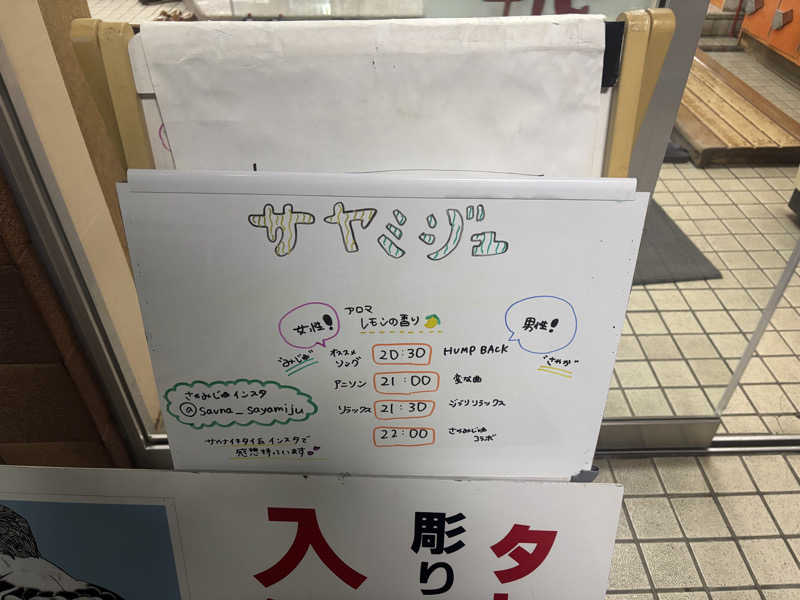 サヤミジュ
女性!
アロマ
レモンの香り
男性!
"みじゅ"
オススメ
ソング
20:30
HUMP BACK
"さやか"
アニソン
21:00
変な曲
リラックス
21:30
ジブリリラックス
22:00
さやみじゅ
コラボ
さやみじゅインスタ
@sauna_sayamiju
サウナイキタイ&インスタで
感想待っています
入
彫り
タ